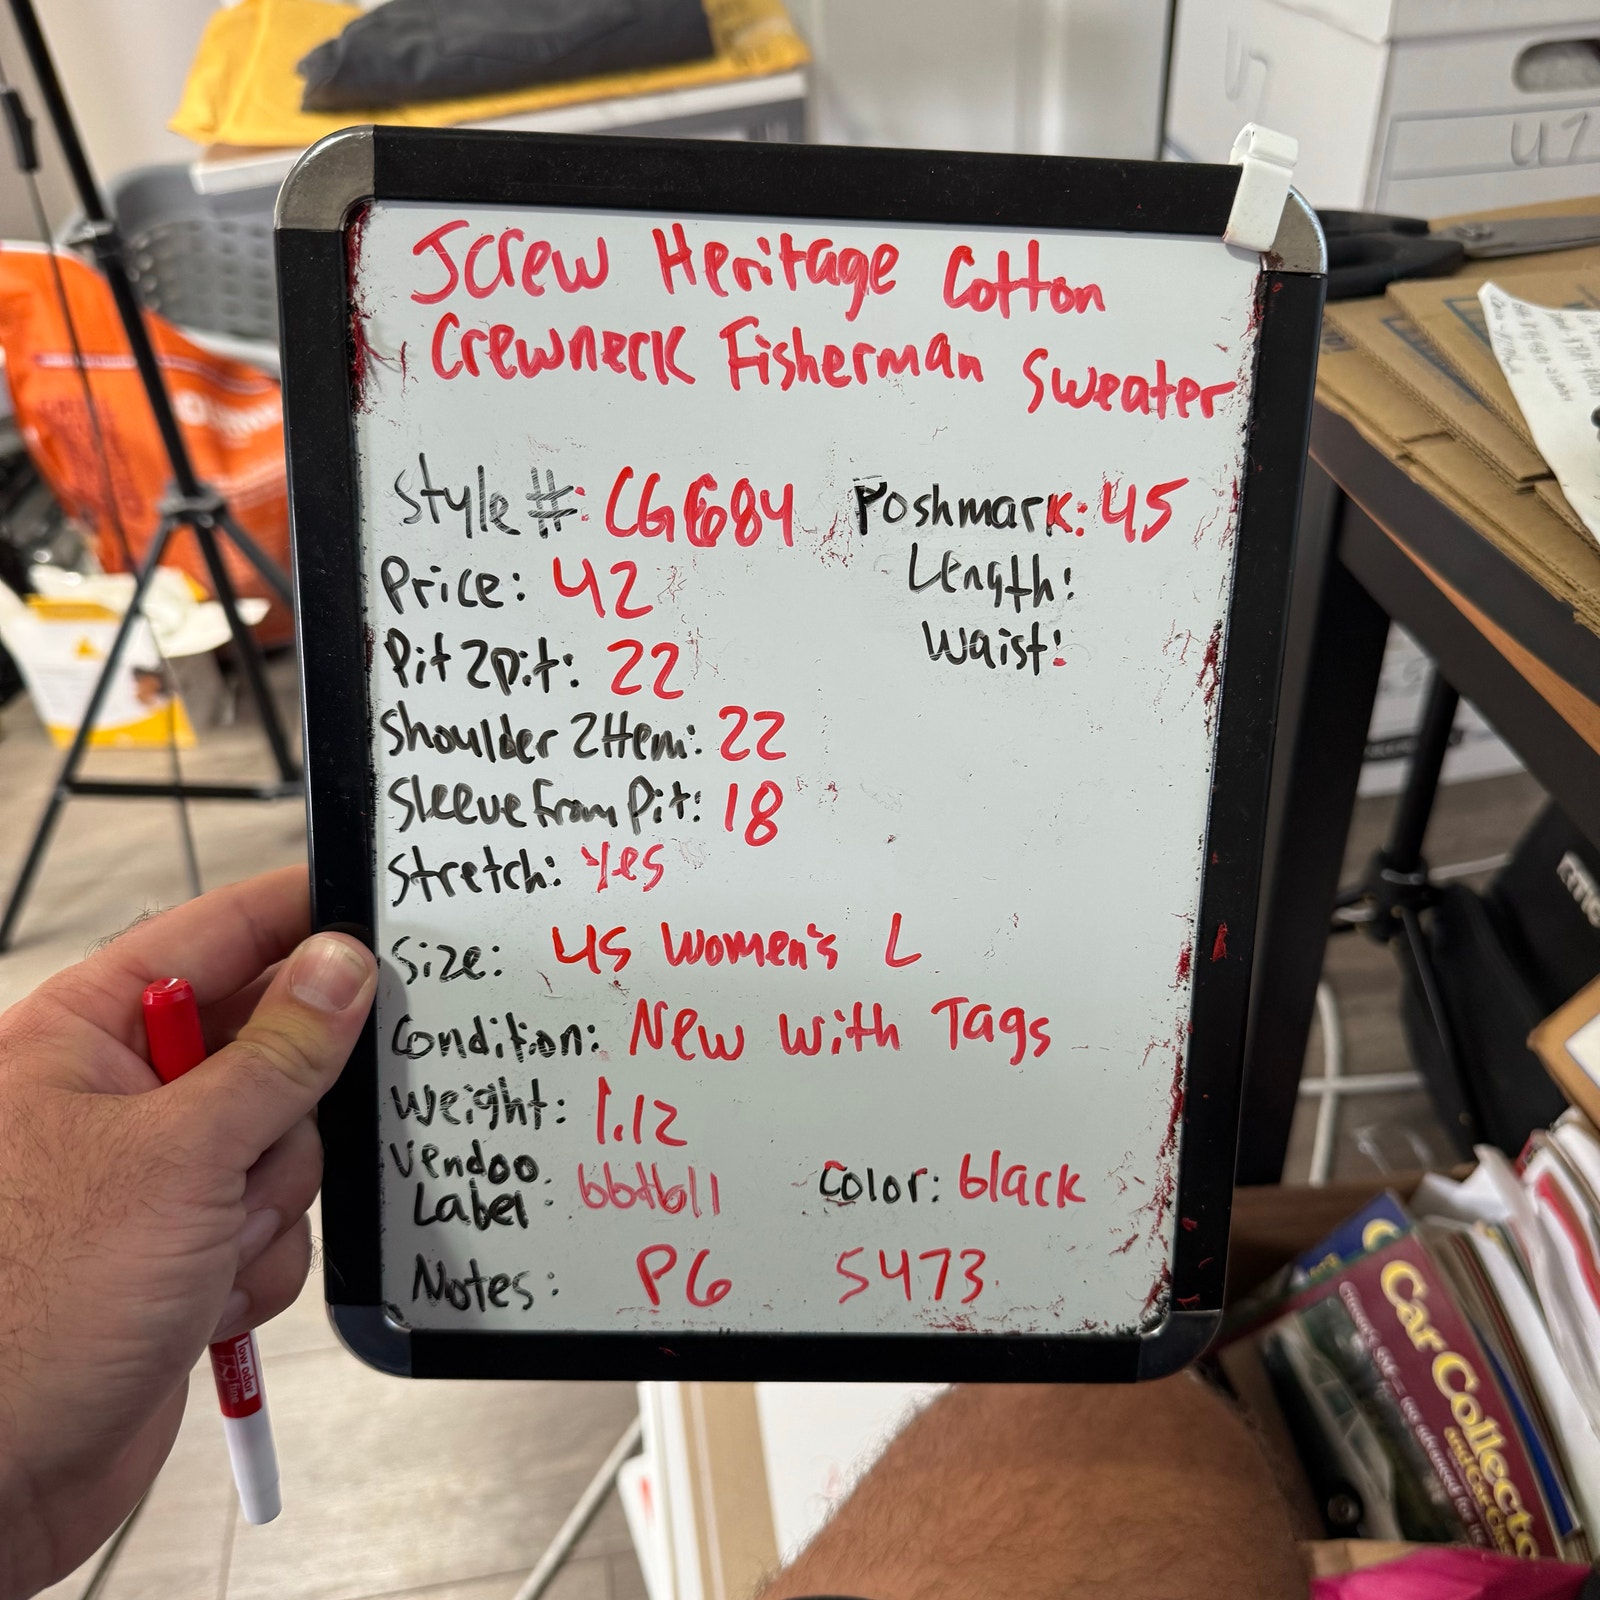 Jcrew Heritage Cotton
Crewneck Fisherman Sweater
Style #: Poshmark: 45
Price: 42 Length:
Pit 2pit: 22 Waist:
Shoulder 2Hem: 22
Sleeve From Pit: 18
Stretch: Yes
Size: US Women's L
Condition: New With Tags
Weight: 1.12
Vendoo
Label: Color: black
Notes: P6 5473
U7
U7
low odor
fine
Car Collector
and Car Classics